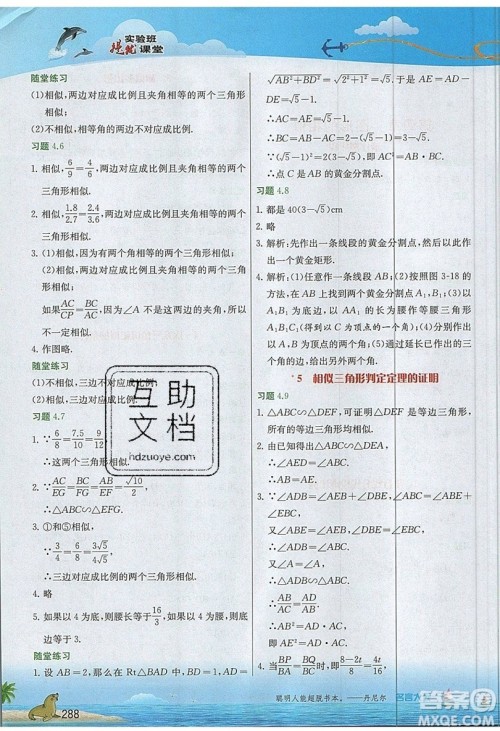 实验班
提优课堂
随堂练习
(1)相似,两边对应成比例且夹角相等的两个三角形
相似;
(2)不相似,相等角的两边不对应成比例.
习题 4.6
1. 相似,6/9=4/6,两边对应成比例且夹角相等的两个三
角形相似.
2. 相似,1.8/2.7=2/3,两边对应成比例且夹角相等的两
个三角形相似.
3. (1)相似,因为有两个角相等的两个三角形相似.
(2)相似,两边对应成比例且夹角相等的两个三角
形相似.
如果AC/CP=BC/AC,因为∠A不是这两边的夹角,所以
不一定相似.
4. 作图略.
随堂练习
不相似,三边对应不成比例.
习题 4.7
∴这两个三角形不相似.
2. ∵AC/EG=BC/FG=AB/EF=√10/2,
∴△ABC∽△EFG.
3. ①和⑤相似,
∵3/4=6/8=3√5/4√5,
∴三边对应成比例的两个三角形相似.
4. 略
5. 如果以4为底,则腰长等于16/3;如果以4为腰,则底
边等于3.
随堂练习
1. 设AB=2,那么在Rt△BAD中,BD=
√AB²+BD²=√2²+1²=√5.于是
∴AC=AE=AD-
DE=√5-1.
∴BC=AB-AC=2-(√5-1)=3-√5.
∴AC²=(√5-1)²=6-2√5,AB·BC=2×(3-√5)
=6-2(√5)²,即AC²=AB·BC.
∴点C是AB的黄金分割点.
习题 4.8
1. 都是40(3-√5)cm
2. 略
3. 解析:先作出一条线段的黄金分割点,然后用尺规作
出黄金矩形.
4. 解析:(1)任意作一条线段AB;(2)按照图3-18的
方法,在AB上找到两个黄金分割点;(3)以黄金分
割点为顶点,以AB的长为腰作等腰三角形;(4)同
理以点B为顶点作另一等腰三角形,两个三角形的
腰相交,得到两个点;(5)通过延长已作出的三角形
的边,找出其余两个角.
*5 相似三角形判定定理的证明
习题 4.9
1. △ABC∽△DEF,可证明△DEF是等边三角形,
所有的等边三角形均相似.
2. 由已知得出△ABC∽△ADE,
∴∠AED=∠ABC.
又∵∠A=∠A,
∴△AED∽△ABC.
3. ∵∠ABE=∠ABD+∠DBE,∠ABD=∠DBE,
又∵∠ABE=∠ABC,
∴∠ADE=∠ABC.
又∵∠A=∠A,
∴△ABC∽△ADE.
∴AB/AD=AC/AE.
∴△ABD∽△ACE.
4. 当BP/BA=BQ/BC时,即(8-2t)/8=4t/
聪明人能超脱书本。——丹尼尔
名言
288
互助
文档
hdzuoye.com
答案圈
MXQE.COM